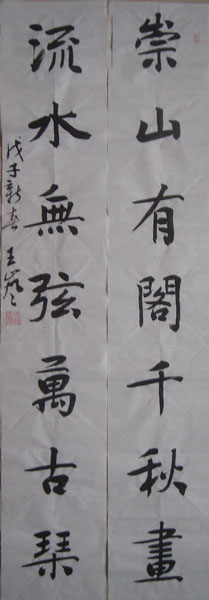 崇山有閣千秋畫
流水無弦萬古琴
戊子新春 王